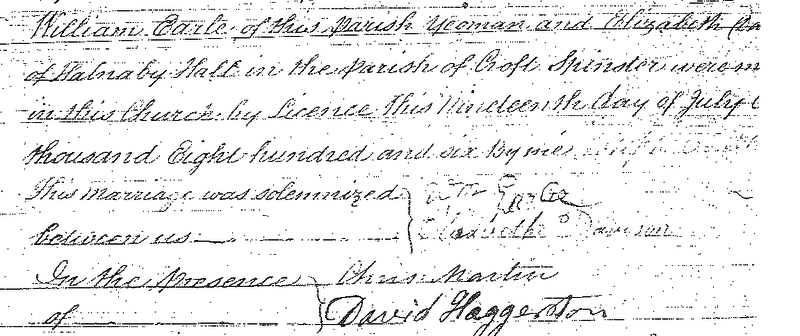 William Earle of this Parish Yeoman and Elizabeth
of Halnaby Hall in the parish of Croft Spinster were m
in this Church by Licence This Nineteenth day of July
thousand Eight hundred and six By me
This marriage was solemnized } Wm Earle
between us } Elizabeth Davison
In the Presence } Chris. Martin
of } David Haggerston